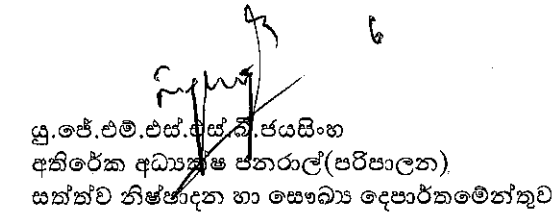 යු.ජේ.එම්.එස්.එස්.බී.ජයසිංහ
අතිරේක අධ්‍යක්ෂ ජනරාල්(පරිපාලන)
සත්ත්ව නිෂ්පාදන හා සෞඛ්‍ය දෙපාර්තමේන්තුව